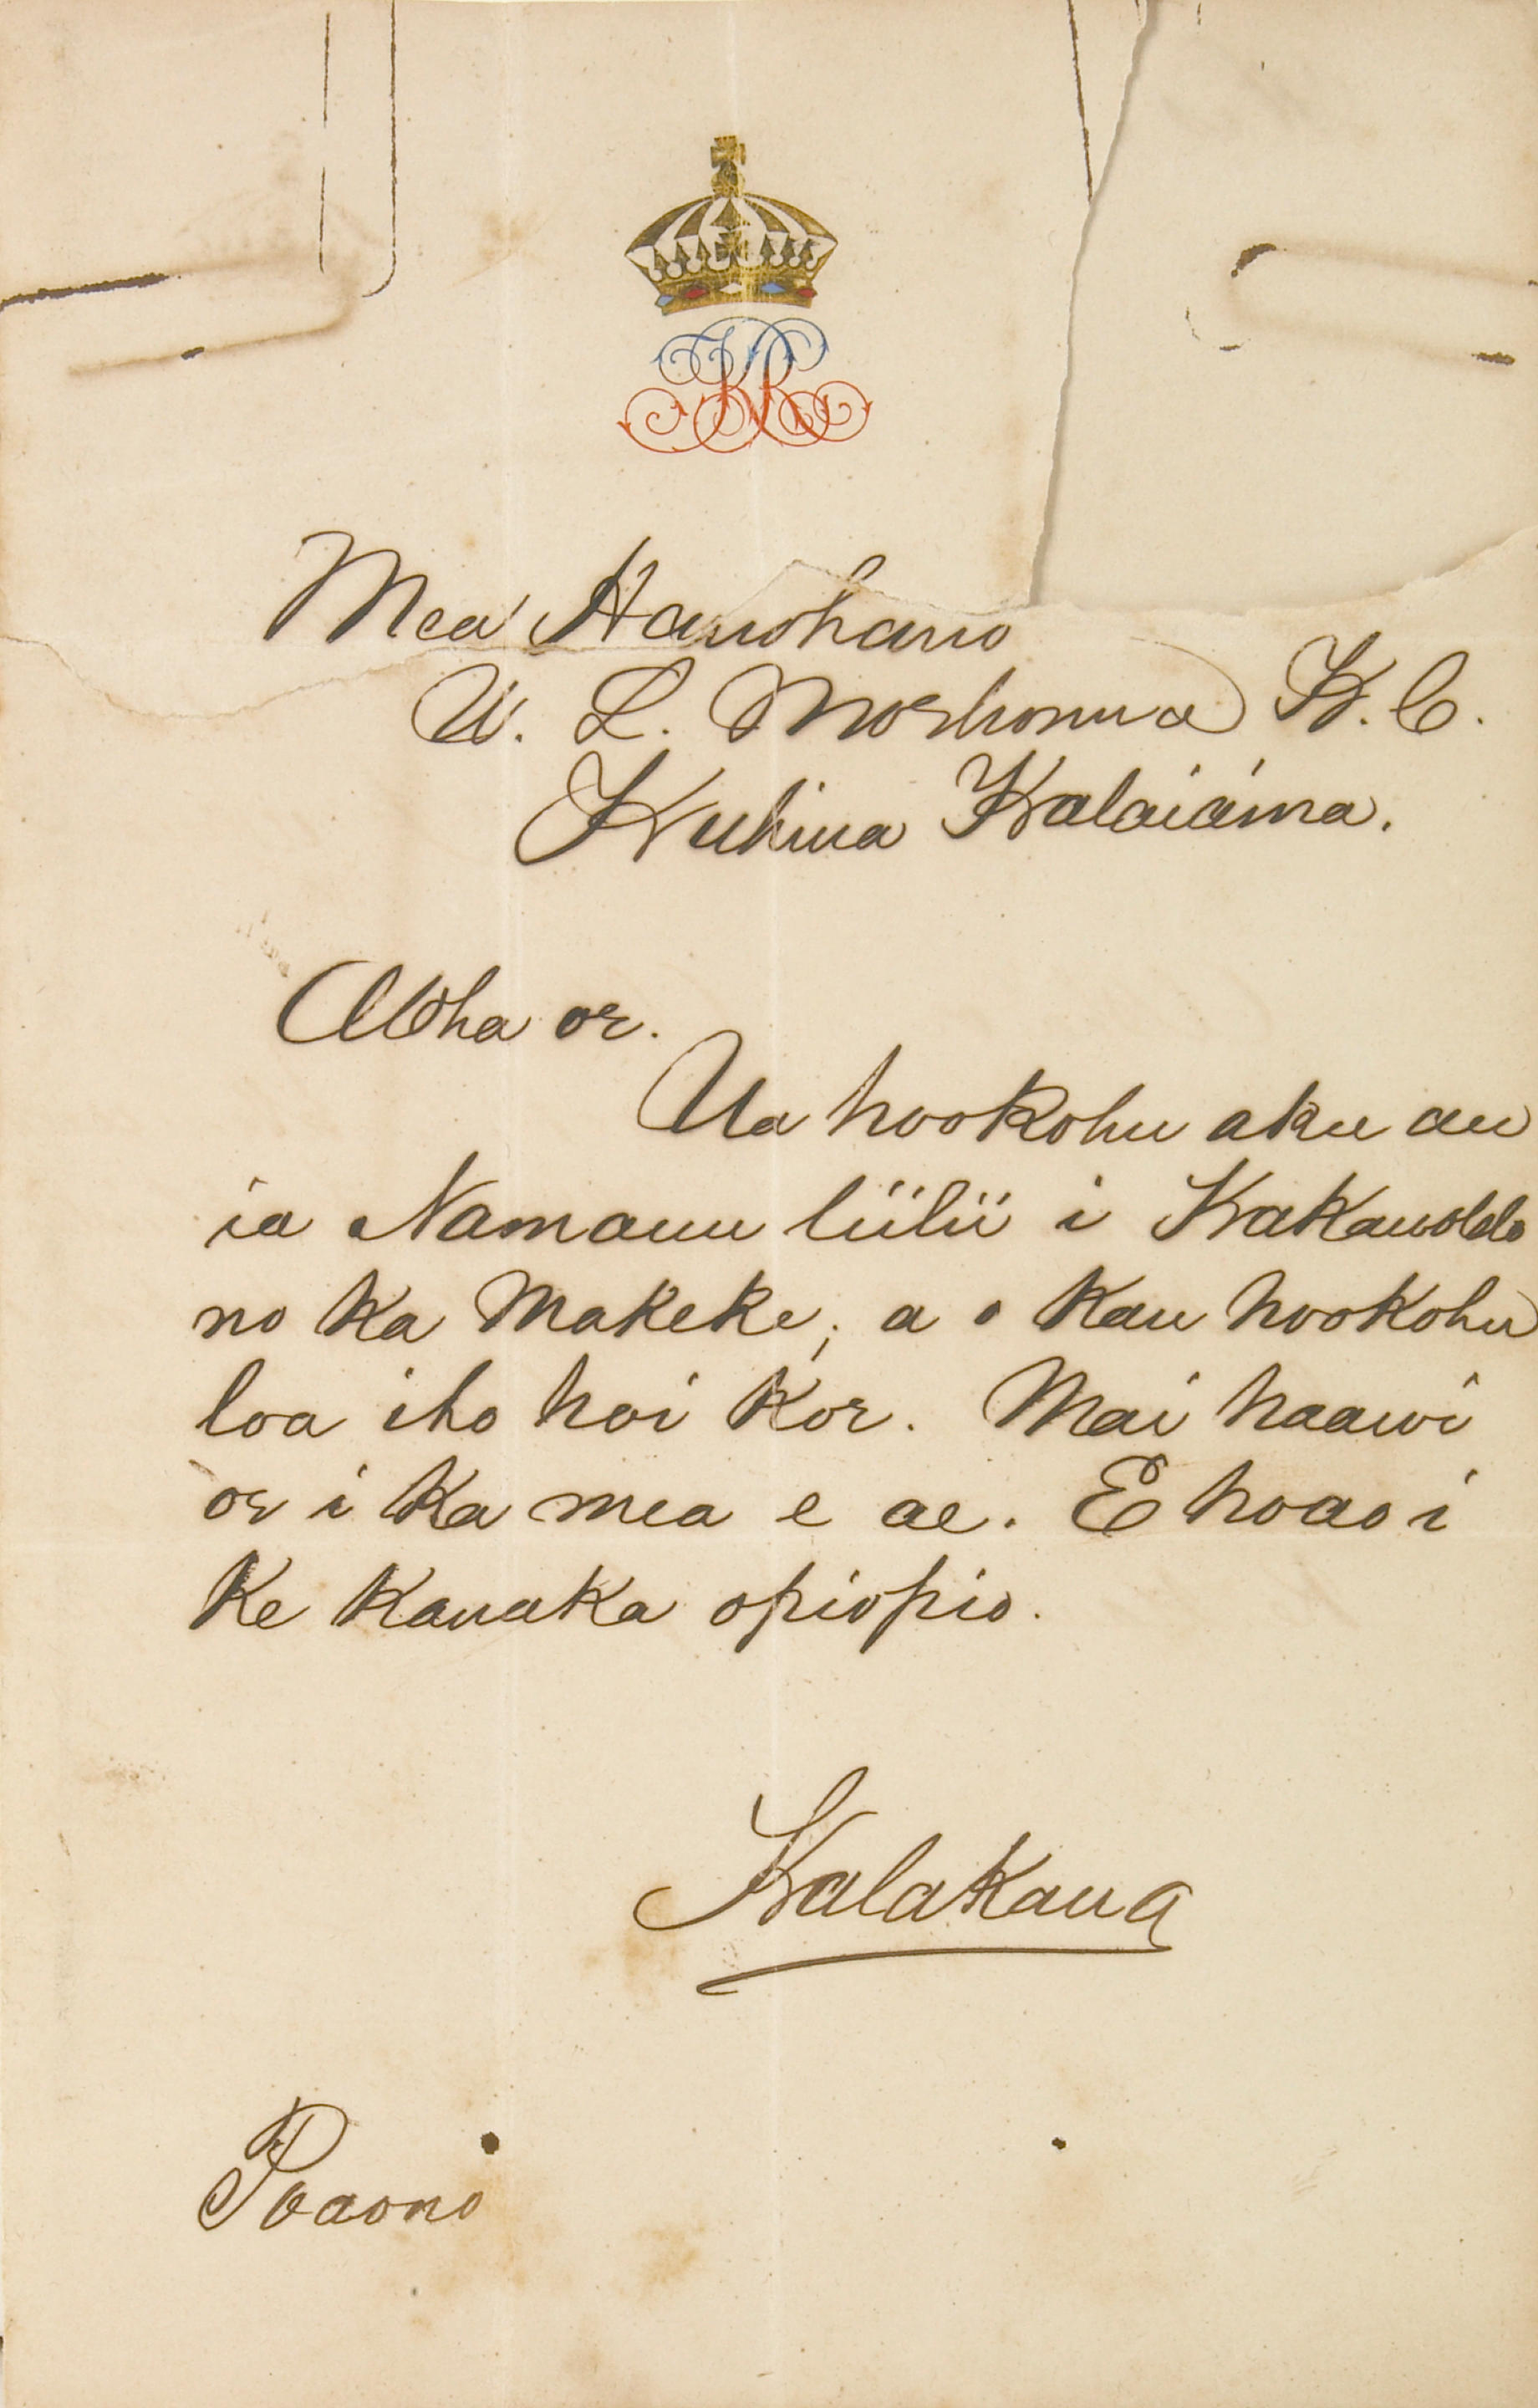 Mea Hanohano
W. L. Moehonua K. C.
Kuhina Kalaiaina.
Aloha oe.
Ua hookohu aku au
ia Namauu liilii i Kakauolelo
no ka Makeke; a o kau hookohu
loa iho hoi koe. Mai haawi
oe i ka mea e ae. E hoao i
ke kanaka opiopio.
Kalakaua
Poaono